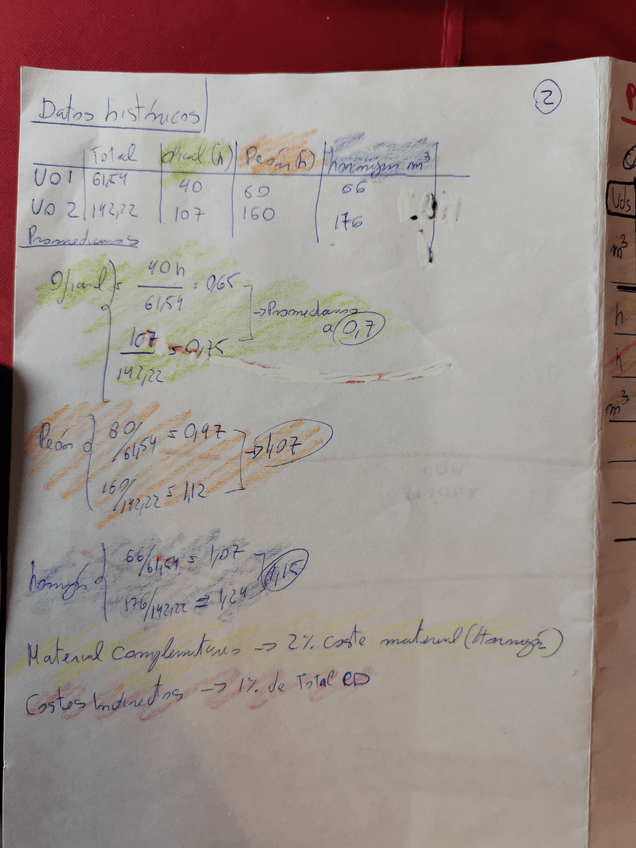 2
Datos históricos
Total Oficial (h) Peón (h) hormigon m³
UO 1 61,54 40 60 66
UO 2 142,22 107 160 176
Promediamos
Oficial = 40h / 61,54 = 0,65
→ Promediamos a 0,7
107 / 142,22 = 0,75
Peón 60/61,54 = 0,97
→ 1,07
160/142,22 = 1,12
hormigón 66/61,54 = 1,07
1,15
176/142,22 = 1,24
Material Complementario → 2% coste material (Hormigón)
Costes Indirectos → 1% de Total CD
Uds
m³
h
h
m³